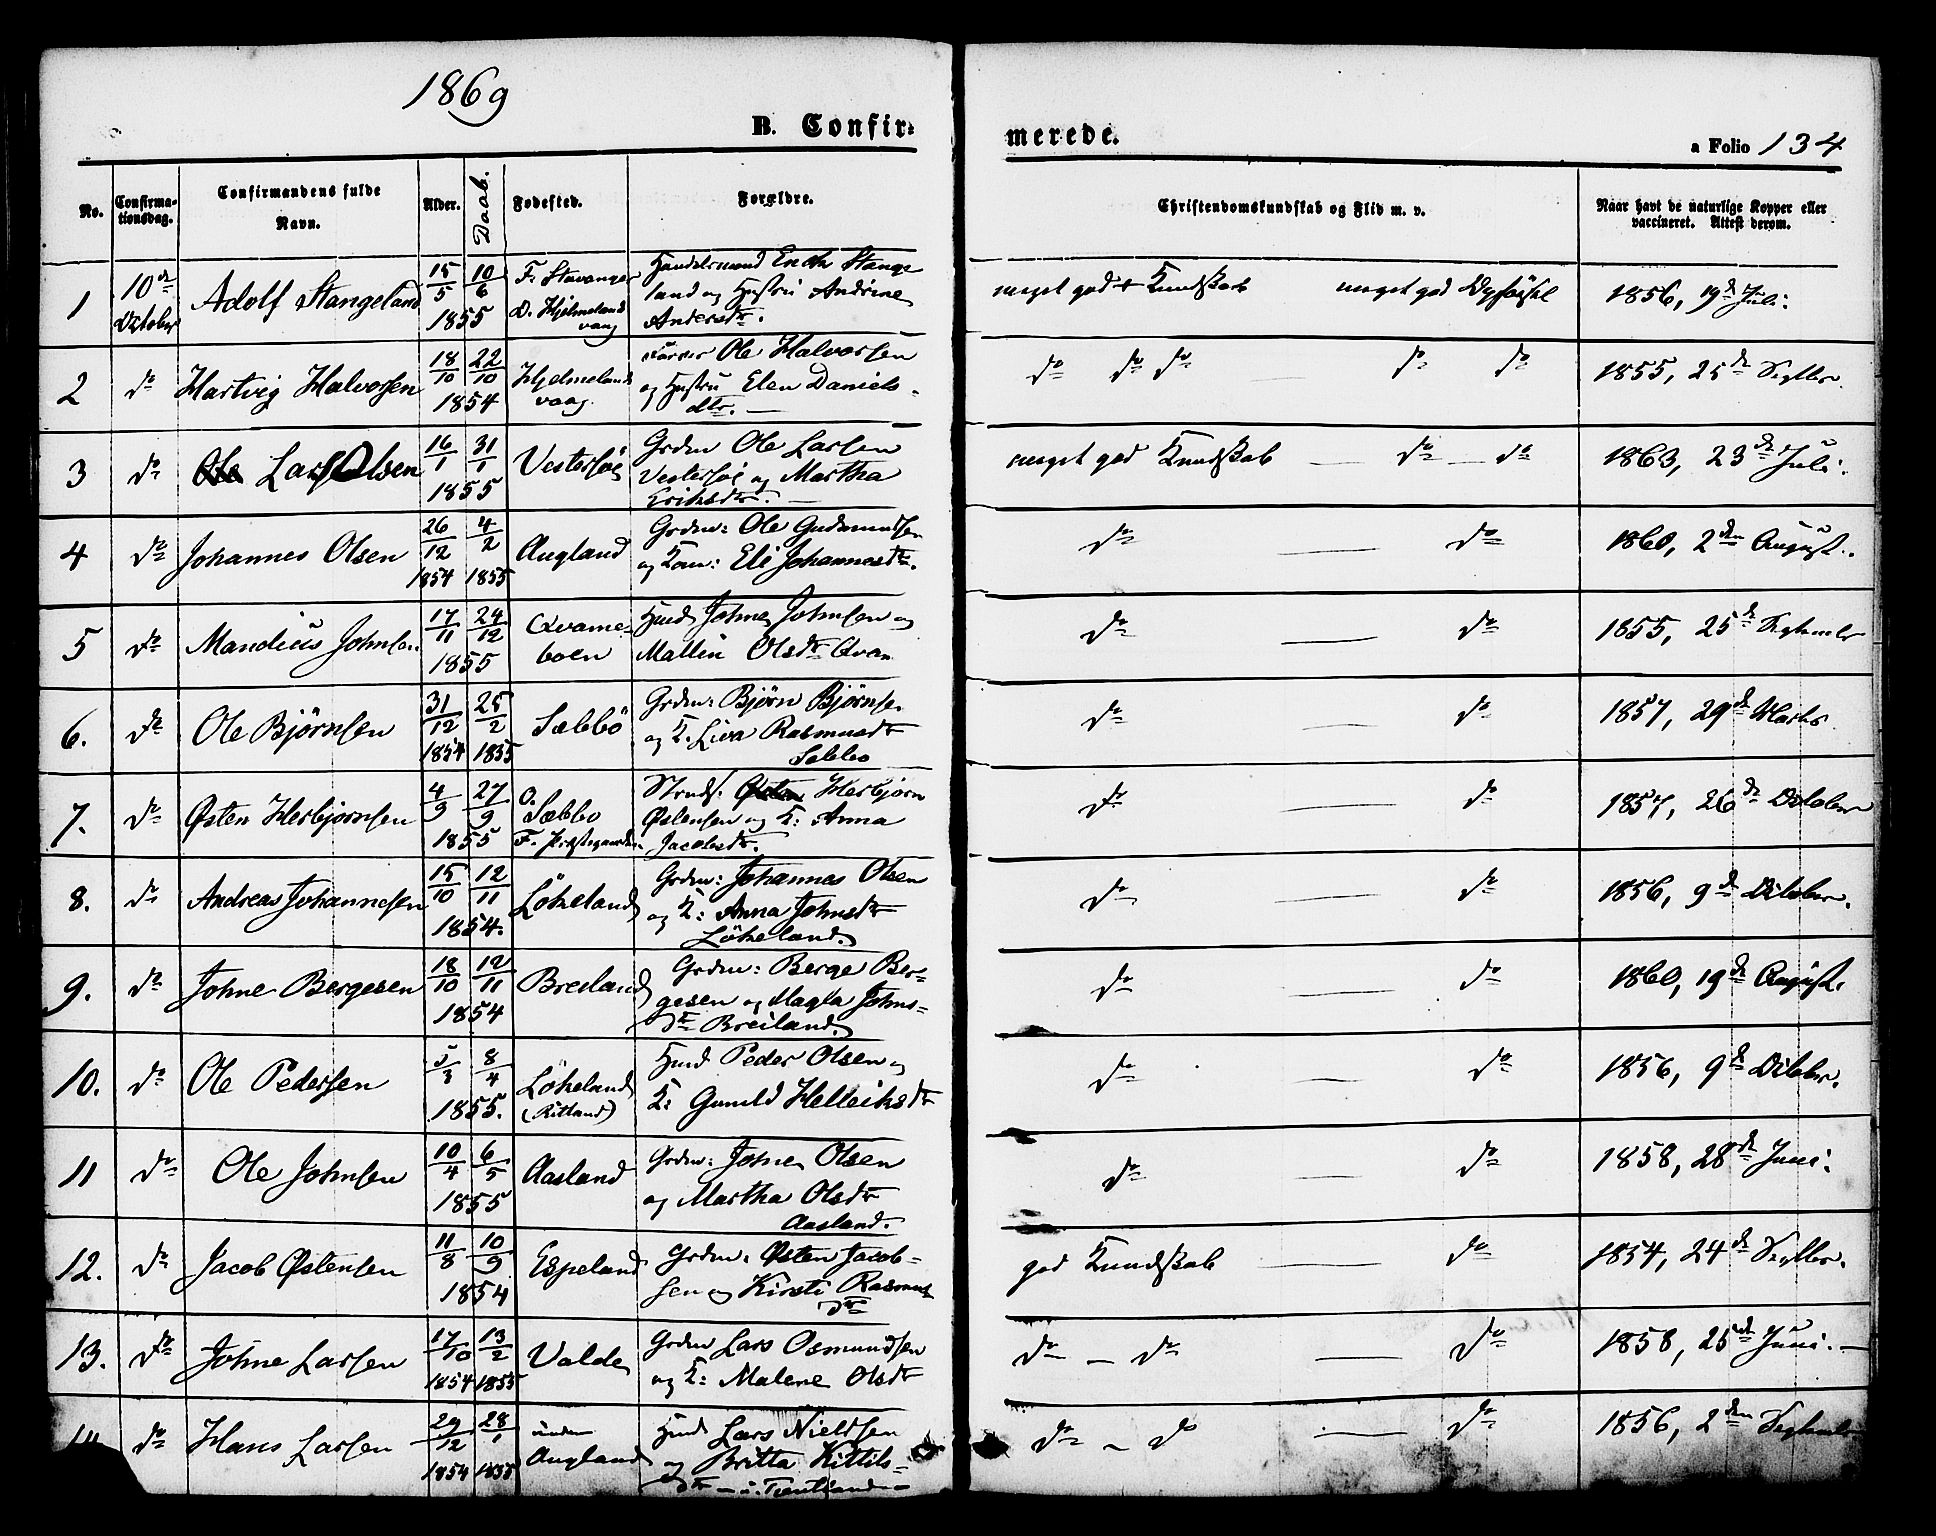 1869
B. Confirmerede.
a Folio 134
No. Confirmationsdag. Confirmandens fulde Navn. Alder. Daab. Fødested. Forældre. Christendomskundskab og Flid m. v. Naar havt de naturlige Kopper eller vaccineret. Attest derom.
1 10de October Adolf Stangeland 15/5 10/6 1855 F. Stavanger D. Hjelmelandsvaag Handelsmand Stangeland og Hustru Andrine Andersdtr. meget god Kundskab meget god Opførsel 1856, 19de Juli.
2 do Hartvig Halvorsen 18/10 22/10 1854 Hjelmelandsvaag. Ole Halvorsen og Hustru Elen Danielsdtr. — do do do — do do 1855, 25de Septbr.
3 do Lars Olsen 16/1 31/1 1855 Vestersøe Grdm Ole Larsen Vestersøe og Martha Eriksdtr. — meget god Kundskab — do — do 1863, 23de Juli.
4 do Johannes Olsen 26/12 1854 4/2 1855 Augland Grdm: Ole Gudmundsen og Kone: Eli Johannesdtr. do — do 1860, 2den August.
5 do Mandius Johnsen 17/11 24/12 1855 Qvameboen Hmd Johne Johnsen og Mallin Olsdtr Qvam do — do 1855, 25de Septembr
6. do Ole Bjørnsen 31/12 1854 25/2 1855 Sæbbö Grdm: Bjørn Bjørnsen og K. Liva Rasmusdtr Sæbbø do — do 1857, 29de Marts.
7. do Østen Herbjørnsen 4/9 27/9 1855 O. Sæbbø F. Præstegaarden Strnds. Herbjørn Østensen og K: Anna Jacobsdtr. do — do 1857, 26de October
8. do Andreas Johannesen 15/10 12/11 1854. Lökeland Grdm: Johannes Olsen og K: Anna Johnsdtr Lökeland. do — do 1856, 9de October.
9. do Johne Bergesen 18/10 12/11 1854 Breiland Grdm: Berge Bergesen og Magla Johnsdtr Breiland. do — do 1860, 19de August.
10. do Ole Pedersen 5/3 8/4 1855. Lökeland (Ritland) Hmd Peder Olsen og K: Gunild Helleiksdtr do — do 1856, 9de Octobr.
11 do Ole Johnsen 10/4 6/5 1855 Aasland Grdm: Johne Olsen og Martha Olsdtr Aasland. do — do 1858, 28de Juni.
12. do Jacob Østensen 11/8 10/9 1854 Espeland Grdm: Østen Jacobsen og Kirsti Rasmusdtr god Kundskab — do 1854, 24de Septbr.
13. do Johne Larsen 17/10 1854 13/2 1855 Valde Grdm Lars Osmundsen og K: Malene Olsdtr do — do — do 1858, 25de Juni. —
14 do Hans Larsen 29/12 1854 28/1 1855 under Augland Hmd Lars Nieldsen og Britta Kittilsdtr — do — do — do 1856, 2den Septembr